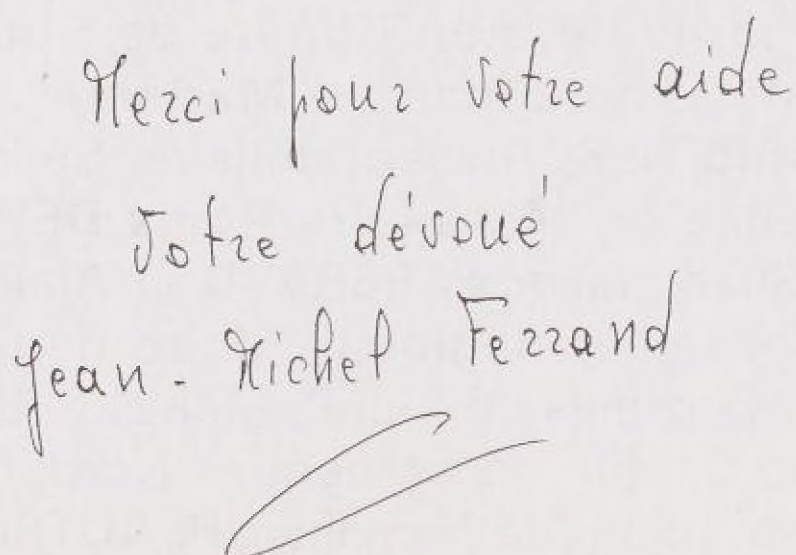 Merci pour votre aide
Votre dévoué
Jean-Michel Ferrand